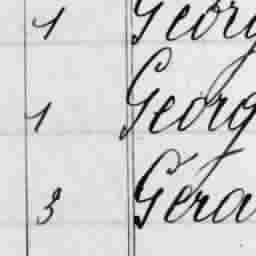 1 Georg
1 Georg
3 Gera